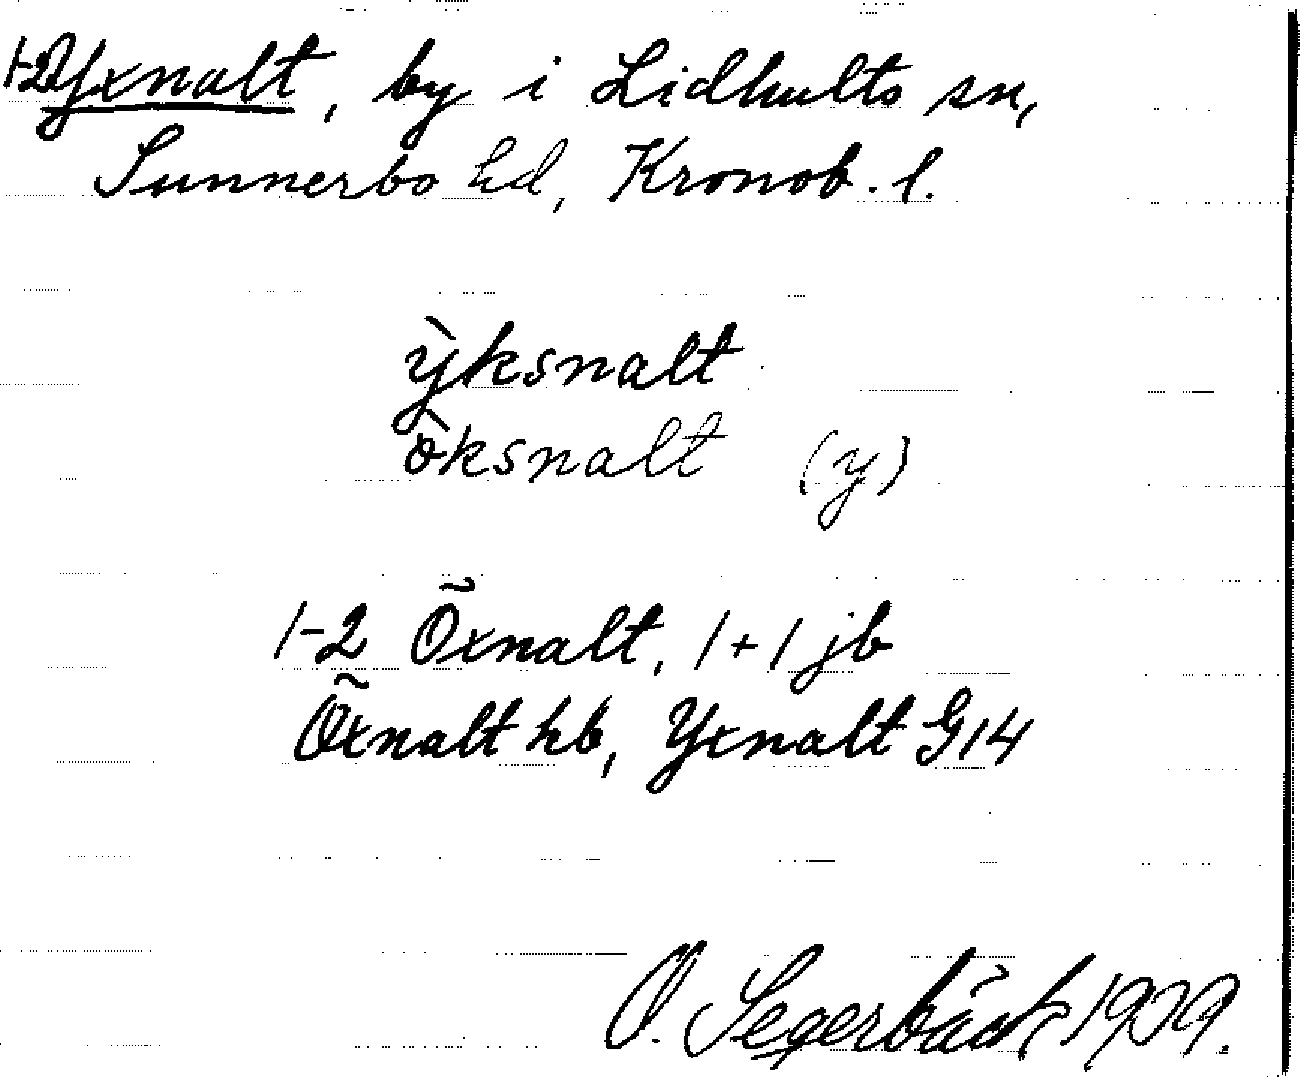 1-2 Yxnalt, by i Lidhults sn,
Sunnerbo hd, Kronob. l.
ỳksnalt
ö̀ksnalt (y)
1-2 Õxnalt, 1+1 jb
Õxnalt hb, Yxnalt G14
O. Segerbäck 1929.